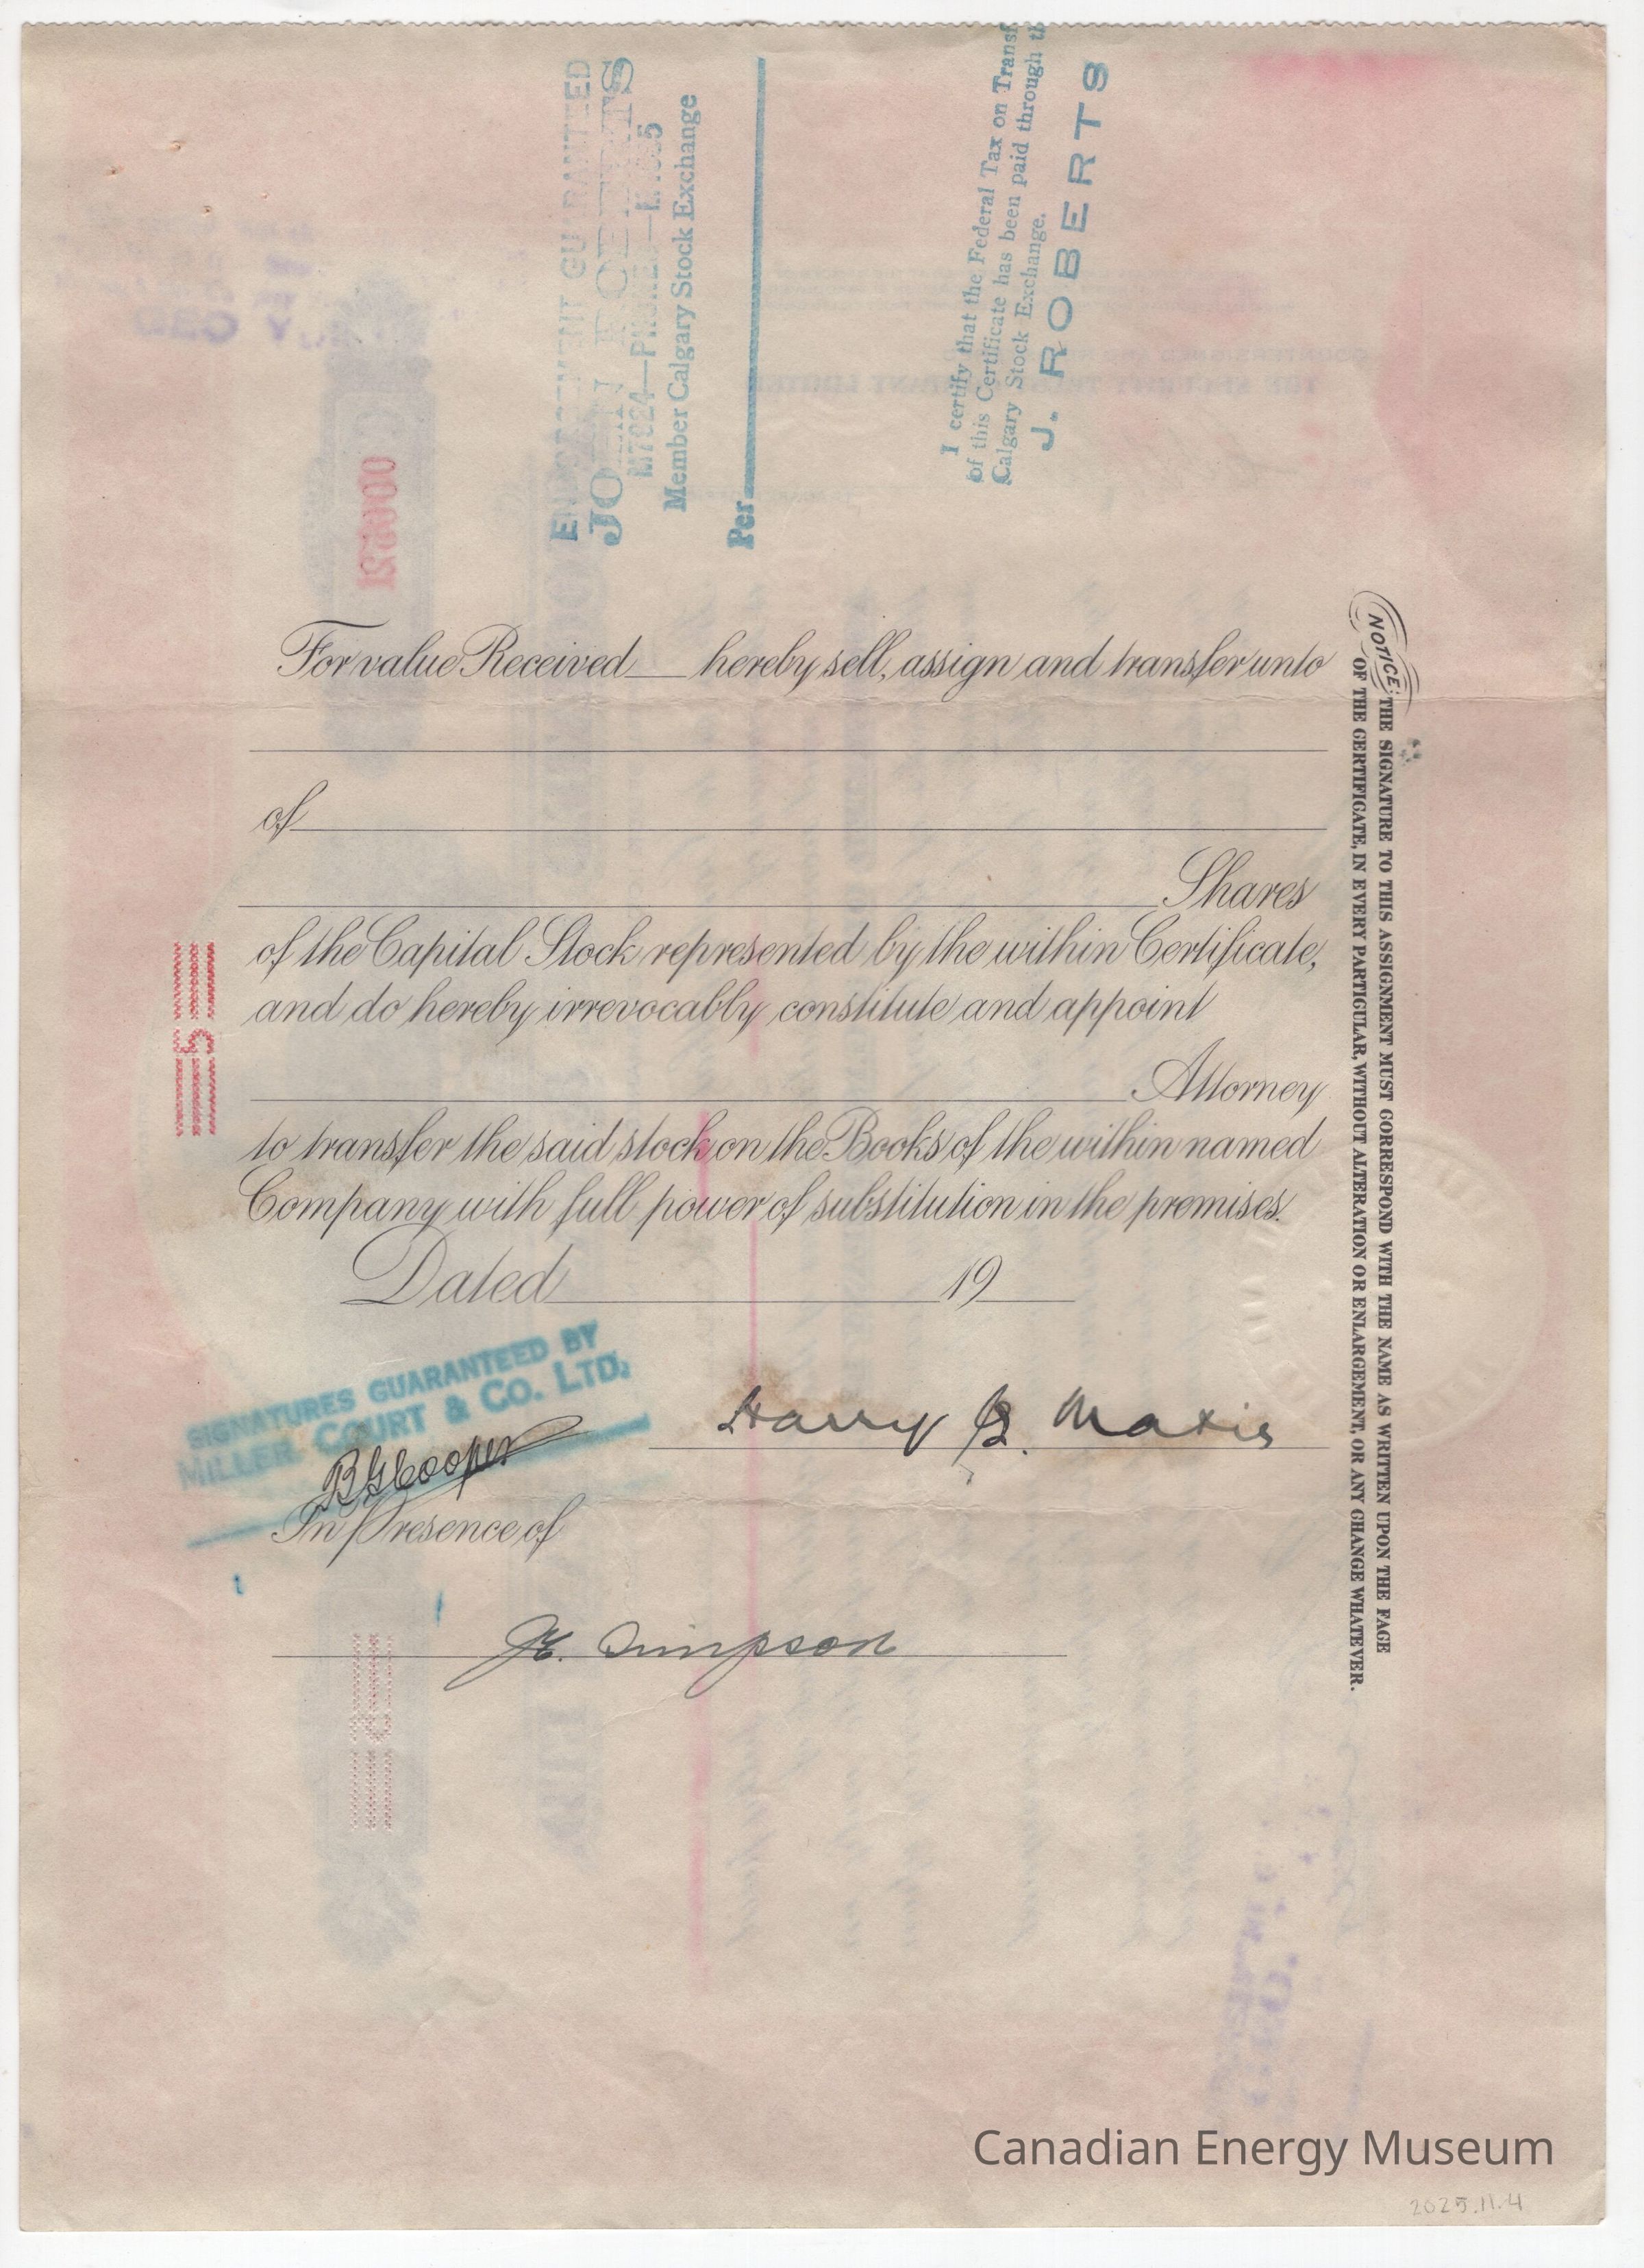 ENDORSEMENT GUARANTEED
JOHN ROBERTS
Member Calgary Stock Exchange
Per
I certify that the Federal Tax on Transf
of this Certificate has been paid through th
Calgary Stock Exchange.
J. ROBERTS
For value Received hereby sell, assign and transfer unto
of
Shares
of the Capital Stock represented by the within Certificate,
and do hereby irrevocably constitute and appoint
Attorney
to transfer the said stock on the Books of the within named
Company with full power of substitution in the premises.
Dated 19
SIGNATURES GUARANTEED BY
MILLER, COURT & CO. LTD.
B G Cooper
Harry G. Maxie
In Presence of
Simpson
NOTICE: THE SIGNATURE TO THIS ASSIGNMENT MUST CORRESPOND WITH THE NAME AS WRITTEN UPON THE FACE
OF THE CERTIFICATE, IN EVERY PARTICULAR, WITHOUT ALTERATION OR ENLARGEMENT, OR ANY CHANGE WHATEVER.
Canadian Energy Museum
2025.11.4